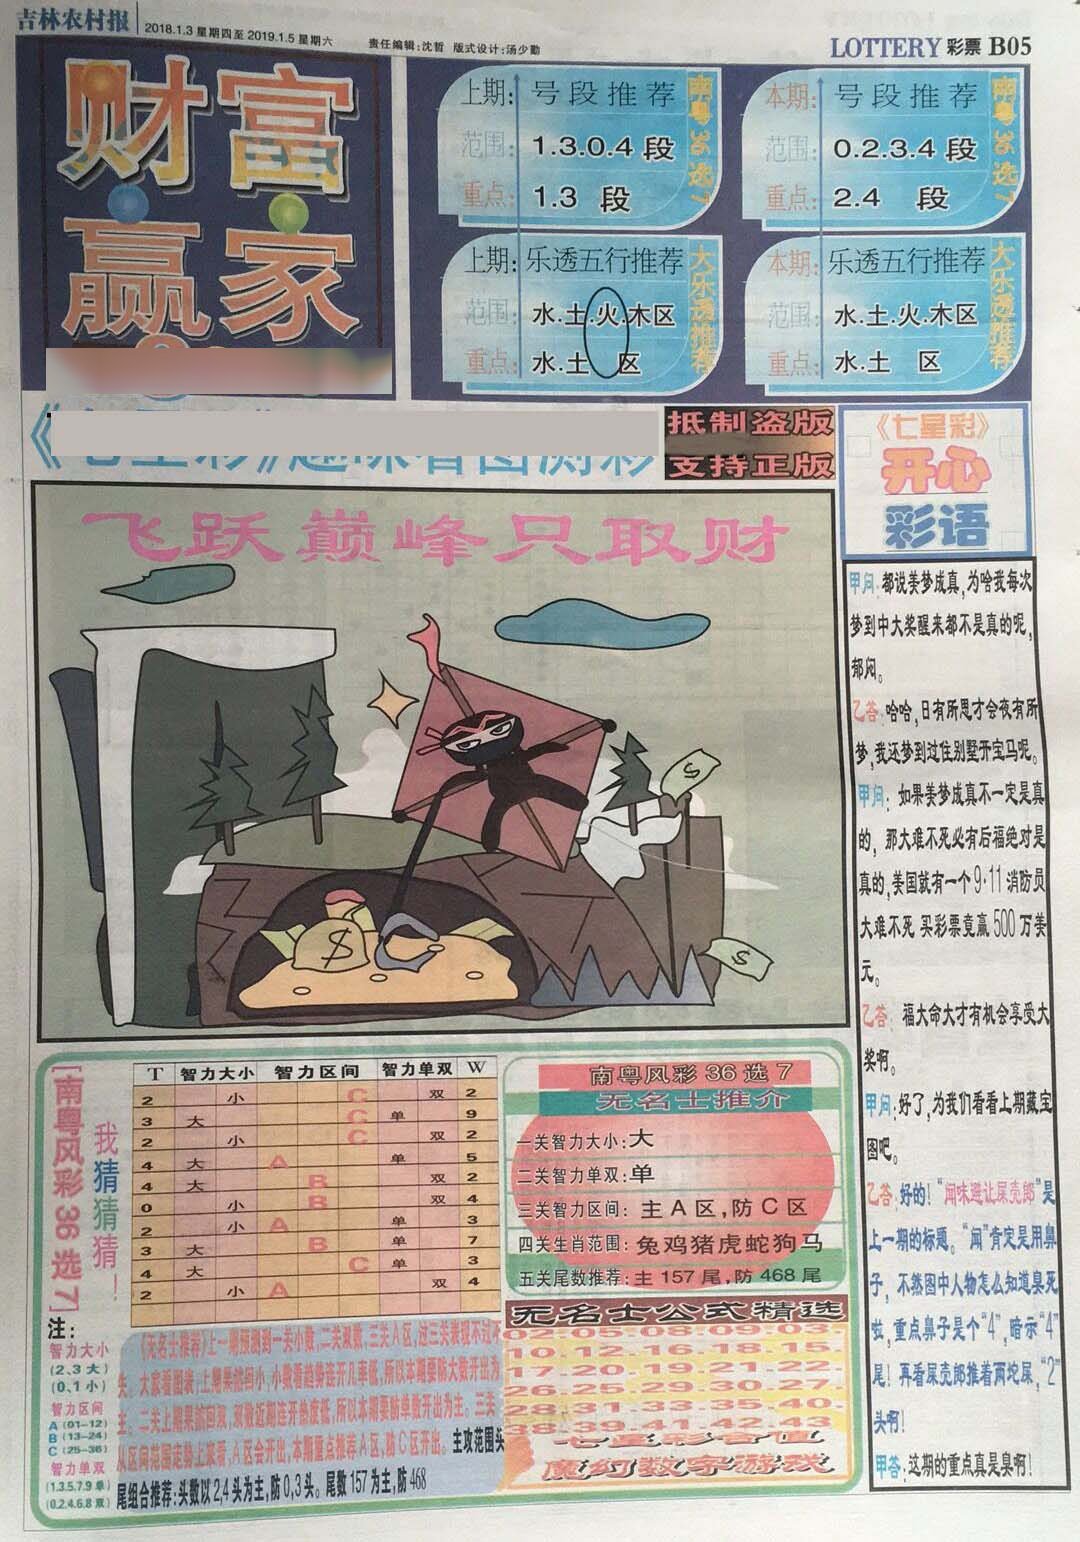 吉林农村报
2018.1.3 星期四至 2019.1.5 星期六
责任编辑:沈哲 版式设计:汤少勤
LOTTERY 彩票 B05
财富
赢家
上期: 号段推荐
范围: 1.3.0.4 段
重点: 1.3 段
南粤36选7
本期: 号段推荐
范围: 0.2.3.4 段
重点: 2.4 段
南粤36选7
上期: 乐透五行推荐
范围: 水.土.火.木区
重点: 水.土 区
大乐透推荐
本期: 乐透五行推荐
范围: 水.土.火.木区
重点: 水.土 区
大乐透推荐
抵制盗版
支持正版
飞跃巅峰只取财
$
$
$
《七星彩》
开心
彩语
甲问:都说美梦成真,为啥我每次
梦到中大奖醒来都不是真的呢,
郁闷。
乙答:哈哈,日有所思才会夜有所
梦,我还梦到过住别墅开宝马呢。
甲问: 如果美梦成真不一定是真
的, 那大难不死必有后福绝对是
真的,美国就有一个9·11消防员
大难不死 买彩票竟赢 500 万美
元。
乙答: 福大命大才有机会享受大
奖啊。
甲问:好了,为我们看看上期藏宝
图吧。
乙答:好的!“闻味避让屎壳郎”是
上一期的标题。“闻”肯定是用鼻
子, 不然图中人物怎么知道臭死
啦, 重点鼻子是个“4”, 暗示“4”
尾! 再看屎壳郎推着两坨屎, “2”
头啊!
甲答:这期的重点真是臭啊!
[南粤风彩36选7]
我猜猜猜!
T 智力大小 智力区间 智力单双 W
2 小 C 双 2
3 大 C 单 9
2 小 C 双 2
4 大 A 单 5
4 大 B 双 2
0 小 B 双 4
2 小 A 单 3
3 大 B 单 7
4 大 C 单 3
2 小 A 双 4
注:
智力大小
(2.3大)
(0.1小)
智力区间
A (01-12)
B (13-24)
C (25-36)
智力单双
(1.3.5.7.9 单)
(0.2.4.6.8 双)
《无名士推荐》上一期预测到一关小数,二关双数,三关A区,过三关表现不过不
失。大家看图表,上期果然回小,小数看趋势连开几率低,所以本期要防大数开出为
主。二关上期果然回双,双数近期连开热度低,所以本期要防单数开出为主。三关
从区间范围走势上来看,A区会开出,本期重点推荐A区,防C区开出。主攻范围头
尾组合推荐:头数以2,4头为主,防0,3头。尾数157为主,防468
南粤风彩36选7
无名士推介
一关智力大小:大
二关智力单双:单
三关智力区间: 主A区,防C区
四关生肖范围: 兔鸡猪虎蛇狗马
五关尾数推荐:主157尾,防468尾
无名士公式精选
02.05.08.09.03.
10.12.16.18.15.
17.20.19.21.22
26.25.29.30.27
28.31.33.35.40.
38.39.41.42.43
七星彩奇值
魔幻数字游戏